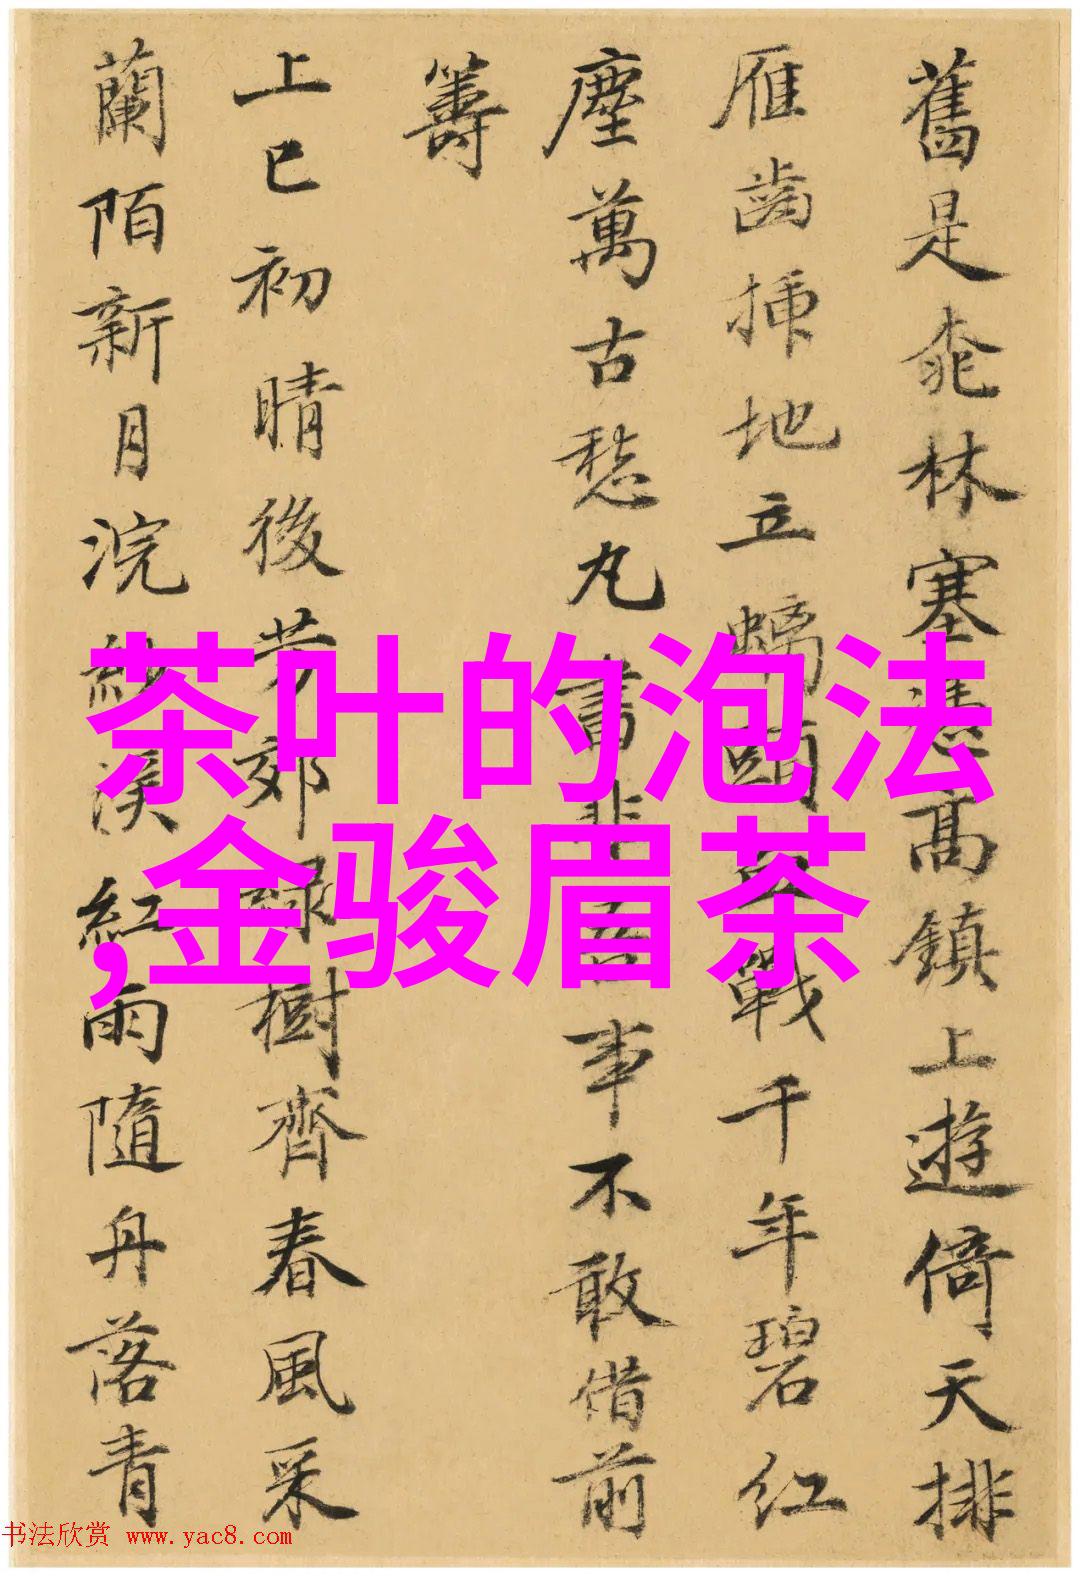 舊是㐬林塞悲高鎮上遊倚天排
雁齒插地立螭頭血戰千年碧紅
塵萬古愁丸書非吾事不敢借前
籌
上巳初晴後芳郊綠樹齊春風采
蘭陌新月浣紗溪紅雨隨舟落青
茶叶的泡法
,金骏眉茶
书法欣赏 www.yac8.com